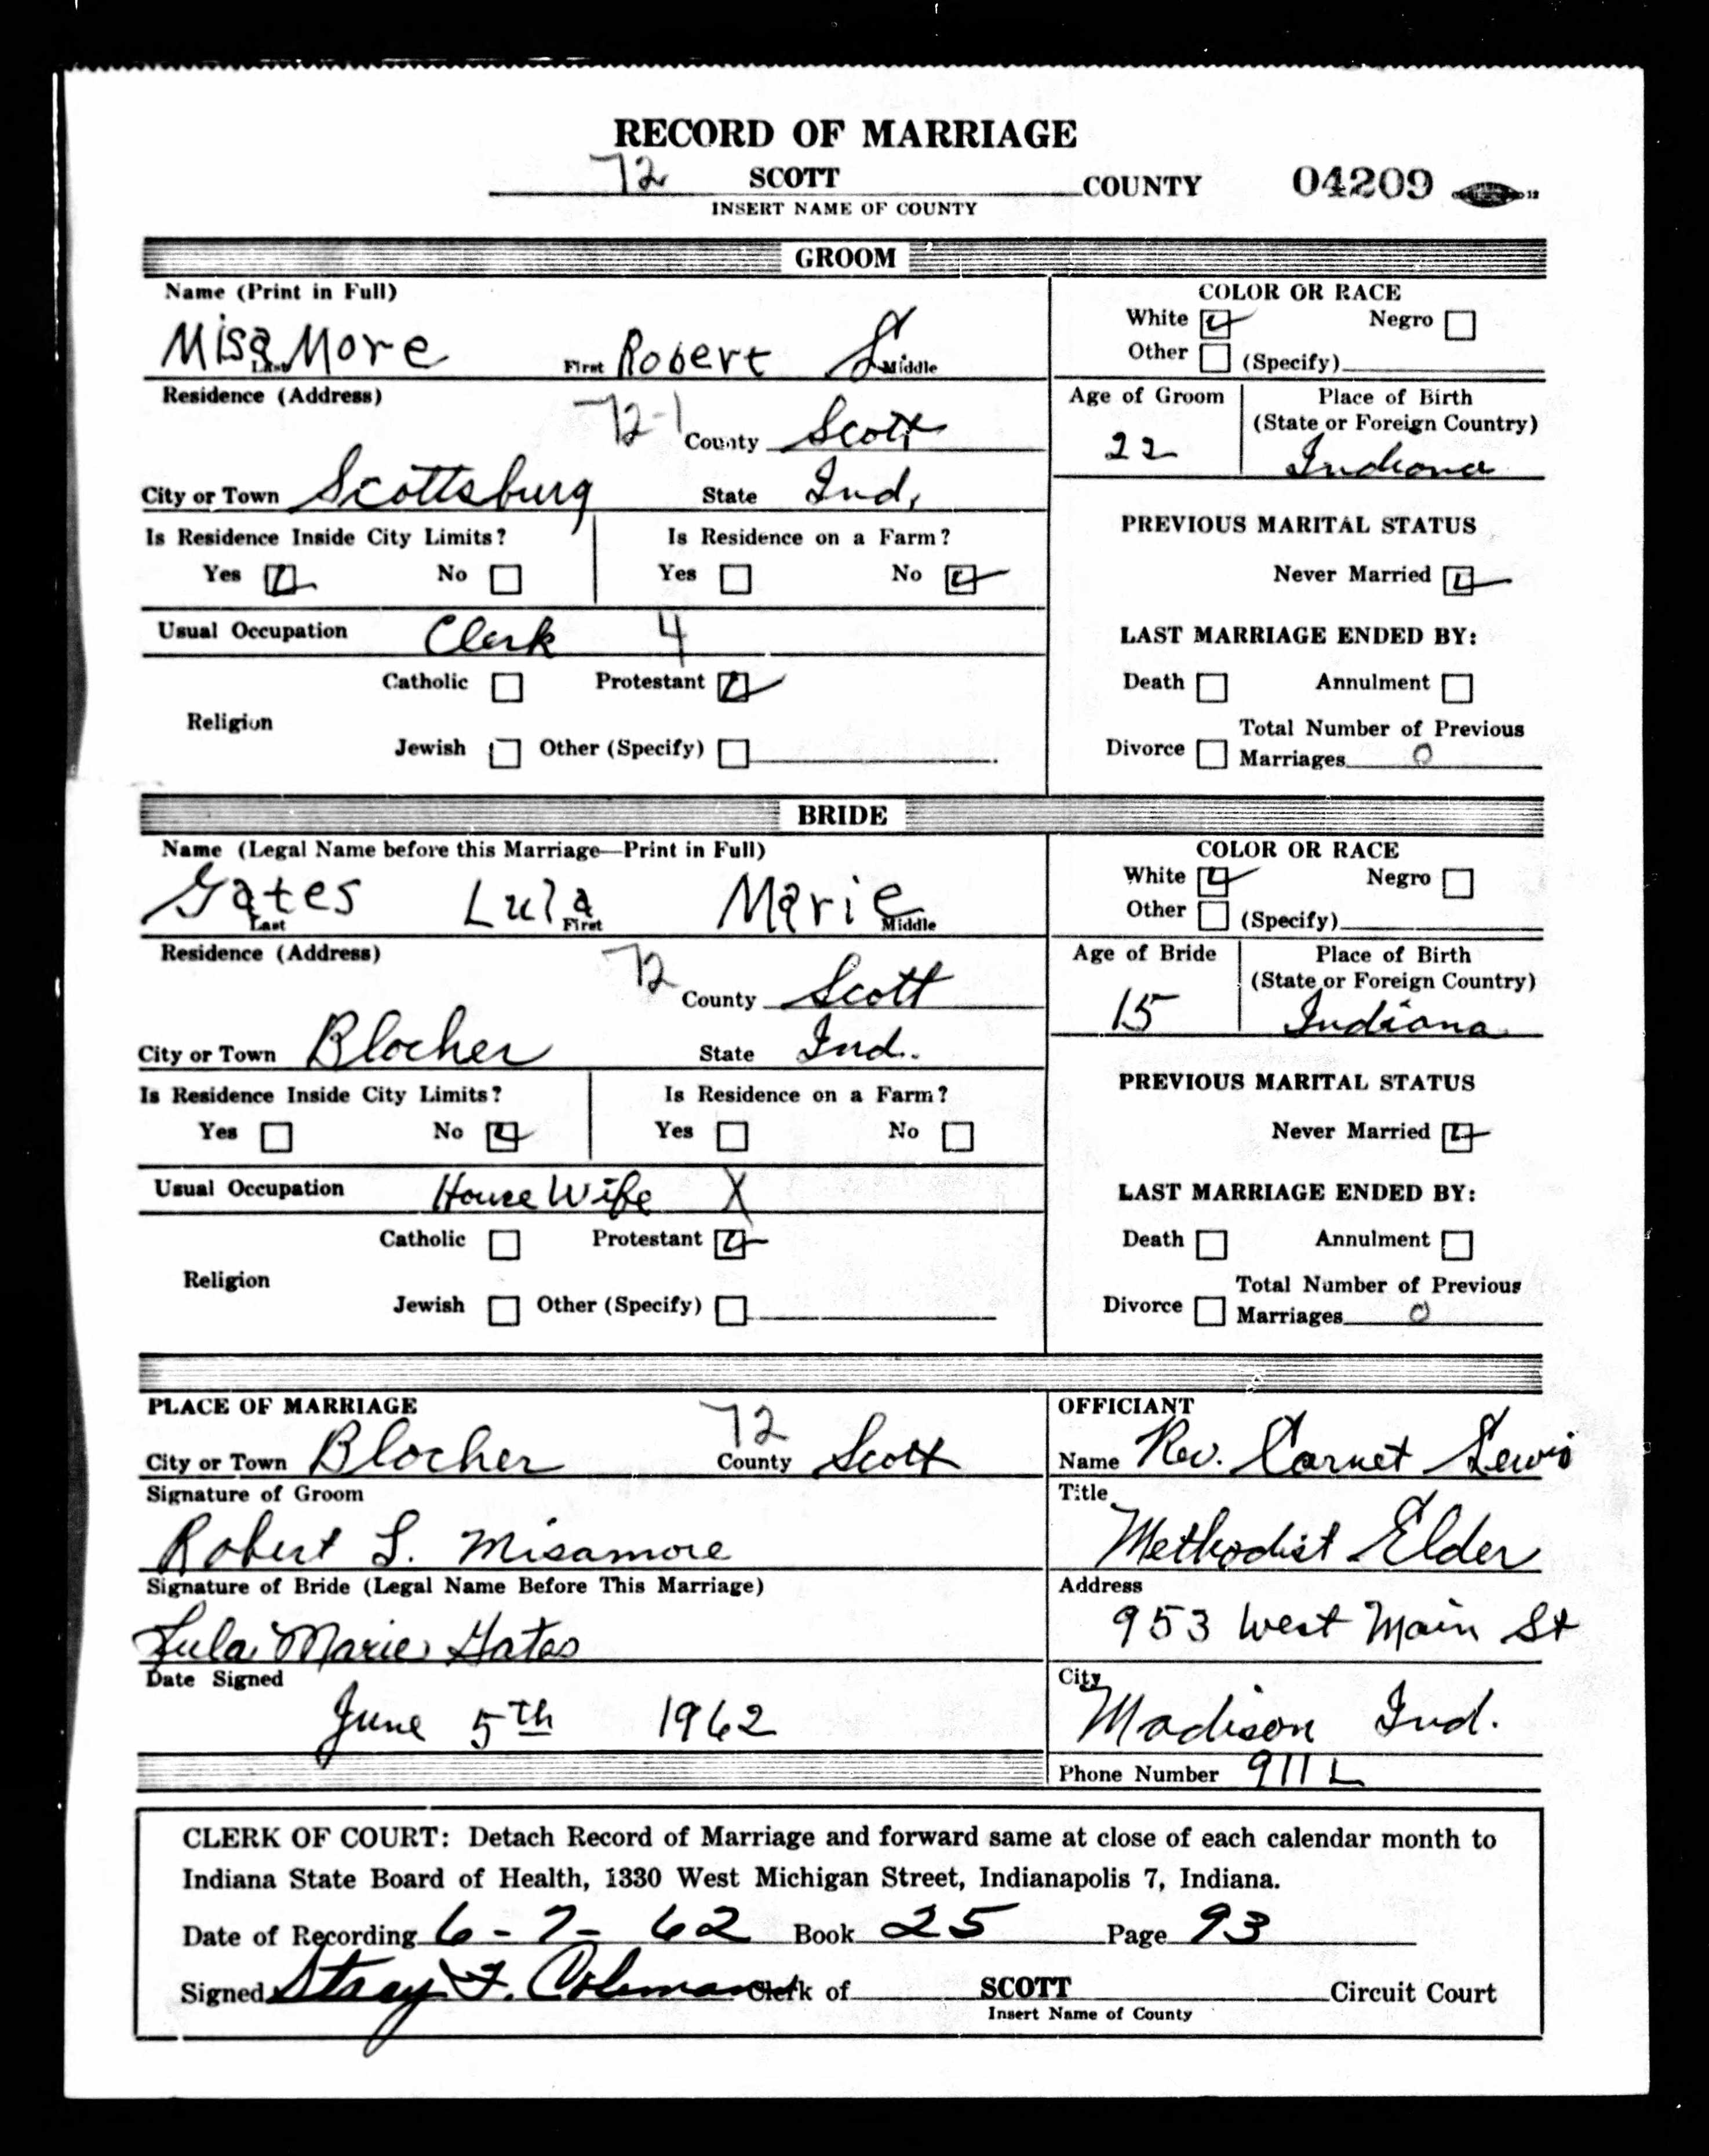 RECORD OF MARRIAGE
72 SCOTT COUNTY 04209
INSERT NAME OF COUNTY
GROOM
Name (Print in Full)
MisaMore Robert L
Last First Middle
COLOR OR RACE
White Negro
Other (Specify)
Residence (Address)
72-1 County Scott
City or Town Scottsburg State Ind.
Age of Groom
22
Place of Birth
(State or Foreign Country)
Indiana
Is Residence Inside City Limits?
Yes No
Is Residence on a Farm?
Yes No
PREVIOUS MARITAL STATUS
Never Married
Usual Occupation Clerk 4
LAST MARRIAGE ENDED BY:
Religion
Catholic Protestant
Jewish Other (Specify)
Death Annulment
Divorce Total Number of Previous
Marriages 0
BRIDE
Name (Legal Name before this Marriage—Print in Full)
Gates Lula Marie
Last First Middle
COLOR OR RACE
White Negro
Other (Specify)
Residence (Address)
72 County Scott
City or Town Blocher State Ind.
Age of Bride
15
Place of Birth
(State or Foreign Country)
Indiana
Is Residence Inside City Limits?
Yes No
Is Residence on a Farm?
Yes No
PREVIOUS MARITAL STATUS
Never Married
Usual Occupation House Wife X
LAST MARRIAGE ENDED BY:
Religion
Catholic Protestant
Jewish Other (Specify)
Death Annulment
Divorce Total Number of Previous
Marriages 0
PLACE OF MARRIAGE
City or Town Blocher 72 County Scott
Signature of Groom
Robert L. Misamore
Signature of Bride (Legal Name Before This Marriage)
Lula Marie Gates
Date Signed
June 5th 1962
OFFICIANT
Name Rev. Carnet Lewis
Title
Methodist Elder
Address
953 West Main St
City
Madison Ind.
Phone Number 911 L
CLERK OF COURT: Detach Record of Marriage and forward same at close of each calendar month to
Indiana State Board of Health, 1330 West Michigan Street, Indianapolis 7, Indiana.
Date of Recording 6-7-62 Book 25 Page 93
Signed F. Coleman Clerk of SCOTT Circuit Court
Insert Name of County